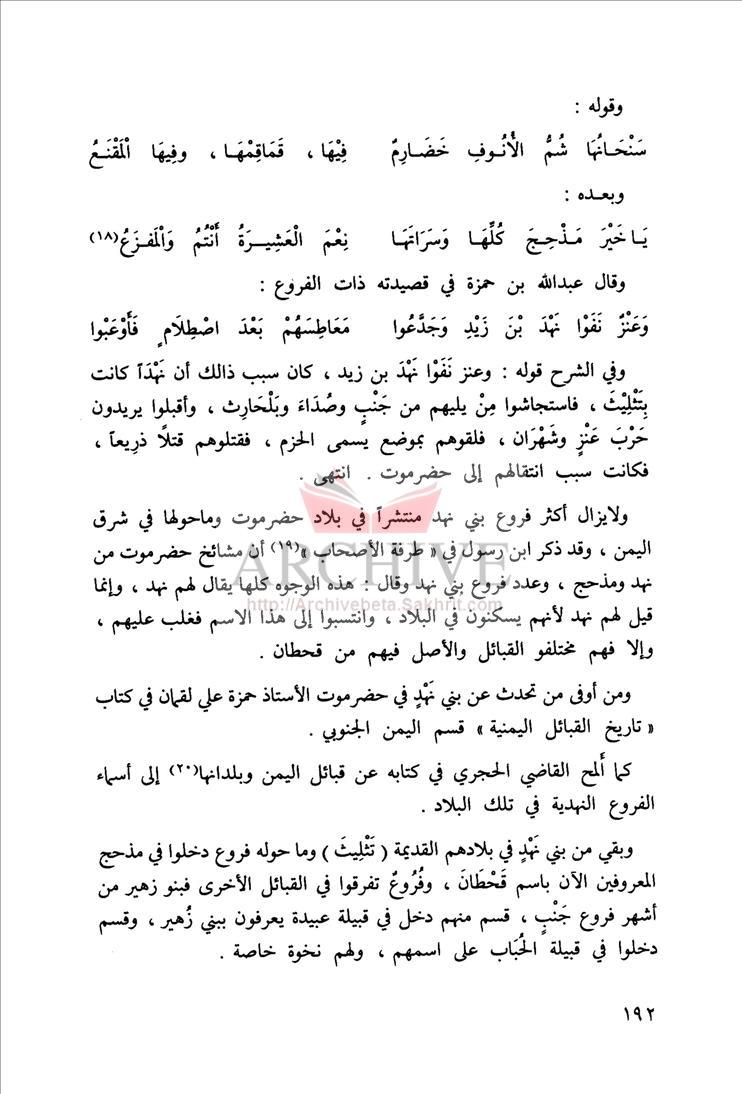 وقوله :
سَنْحَـانُهَا شُمُّ الأُنُـوفِ خَضَـارِمٌ فِيْهَا ، قَمَاقِمْهَـا ، وفِيهَا الْمَقْنَـعُ
وبعـده :
يَـا خَيْرَ مَـذْحِـجَ كُلِّهَـا وَسَرَاتَهَـا نِعْمَ الْعَشِيـرَةُ أَنْتُمُ وَالْمَفـزَعُ(١٨)
وقال عبدالله بن حمزة في قصيدته ذات الفروع :
وَعَنْزٌ نَفَوْا نَهْدَ بْنَ زَيْدِ وَجَدَّعُوا مَعَاطِسَهُمْ بَعْدَ اصْطِلَامٍ فَأَوْعَبُوا
وفي الشرح قوله : وعنز نَفَوْا نَهْدَ بن زيد ، كان سبب ذالك أن نَهْدَاً كانت
بِتَثْلِيْثَ ، فاستجاشوا مِنْ يليهم من جَنْبٍ وصُدَاءَ وبَلْحَارِث ، وأقبلوا يريدون
حَرْبَ عَنْزٍ وشَهْرَان ، فلقوهم بموضع يسمى الحزم ، فقتلوهم قتلاً ذرِيعاً ،
فكانت سبب انتقالهم إلى حضرموت . انتهى .
ولايزال أكثر فروع بني نهد منتشراً في بلاد حضرموت وماحولها في شرق
اليمن ، وقد ذكر ابن رسول في « طرفة الأصحاب »(١٩) أن مشائخ حضرموت من
نهد ومذحج ، وعدد فروع بني نهد وقال : هذه الوجوه كلها يقال لهم نهد ، وإنما
قيل لهم نهد لأنهم يسكنون في البلاد ، وانتسبوا إلى هذا الاسم فغلب عليهم ،
وإلا فهم مختلفو القبائل والأصل فيهم من قحطان .
ومن أوفى من تحدث عن بني نَهْدٍ في حضرموت الأستاذ حمزة علي لقمان في كتاب
« تاريخ القبائل اليمنية » قسم اليمن الجنوبي .
كما أَلمح القاضي الحجري في كتابه عن قبائل اليمن وبلدانها(٢٠) إلى أسماء
الفروع النهدية في تلك البلاد .
وبقي من بني نَهْدٍ في بلادهم القديمة ( تَثْلِيثَ ) وما حوله فروع دخلوا في مذحج
المعروفين الآن باسم قَحْطَانَ ، وفُرُوعٌ تفرقوا في القبائل الأخرى فبنو زهير من
أشهر فروع جَنْبٍ ، قسم منهم دخل في قبيلة عبيدة يعرفون ببني زُهير ، وقسم
دخلوا في قبيلة الحُبَاب على اسمهم ، ولهم نخوة خاصة .
١٩٢
ARCHIVE
http://Archivebeta.Sakhrit.com